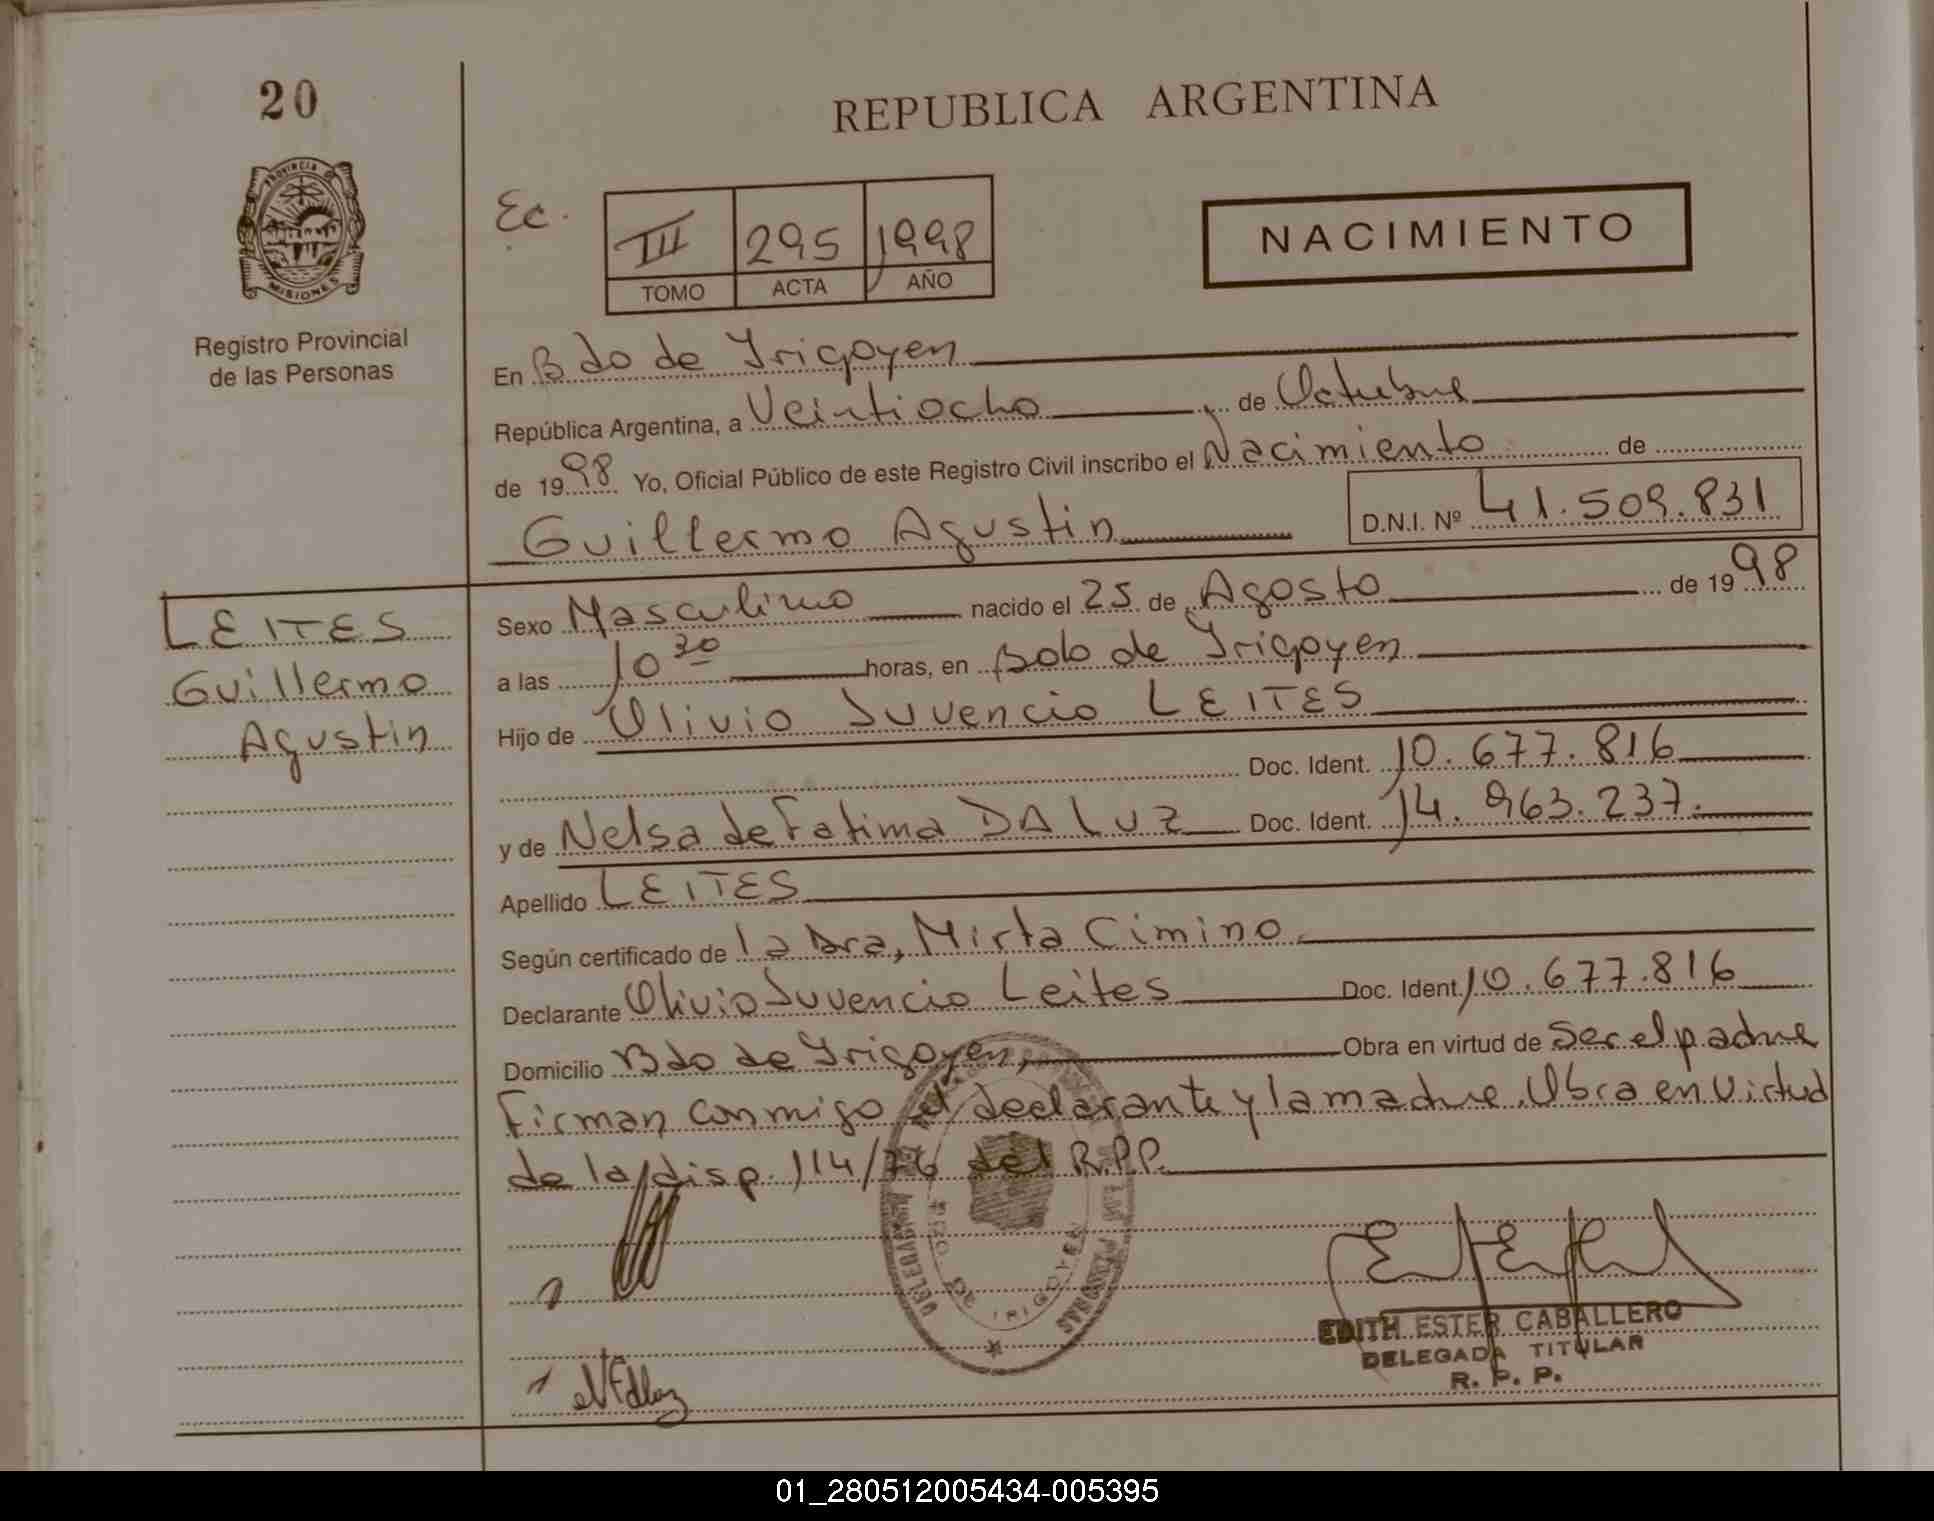 20
REPUBLICA ARGENTINA
PROVINCIA DE
MISIONES
Registro Provincial
de las Personas
Ec.
III 295 1998
TOMO ACTA AÑO
NACIMIENTO
En Bdo de Irigoyen
República Argentina, a Veintiocho de Octubre
de 1998 Yo, Oficial Público de este Registro Civil inscribo el Nacimiento de
Guillermo Agustin D.N.I. Nº 41.509.831
LEITES
Guillermo
Agustin
Sexo Masculino nacido el 25 de Agosto de 1998
a las 10 30 horas, en Bdo de Irigoyen
Hijo de Olivio Juvencio LEITES
Doc. Ident. 10.677.816
y de Nelsa de Fatima DA LUZ Doc. Ident. 14.963.237.
Apellido LEITES
Según certificado de la Dra, Mirta Cimino
Declarante Olivio Juvencio Leites Doc. Ident. 10.677.816
Domicilio Bdo de Irigoyen, Obra en virtud de Ser el padre
Firman conmigo el declarante y la madre. Obra en Virtud
de la disp. 114/76 del R.P.P.
DELEGADA
BDO. DE IRIGOYEN
EDITH ESTER CABALLERO
DELEGADA TITULAR
R. P. P.
01_280512005434-005395